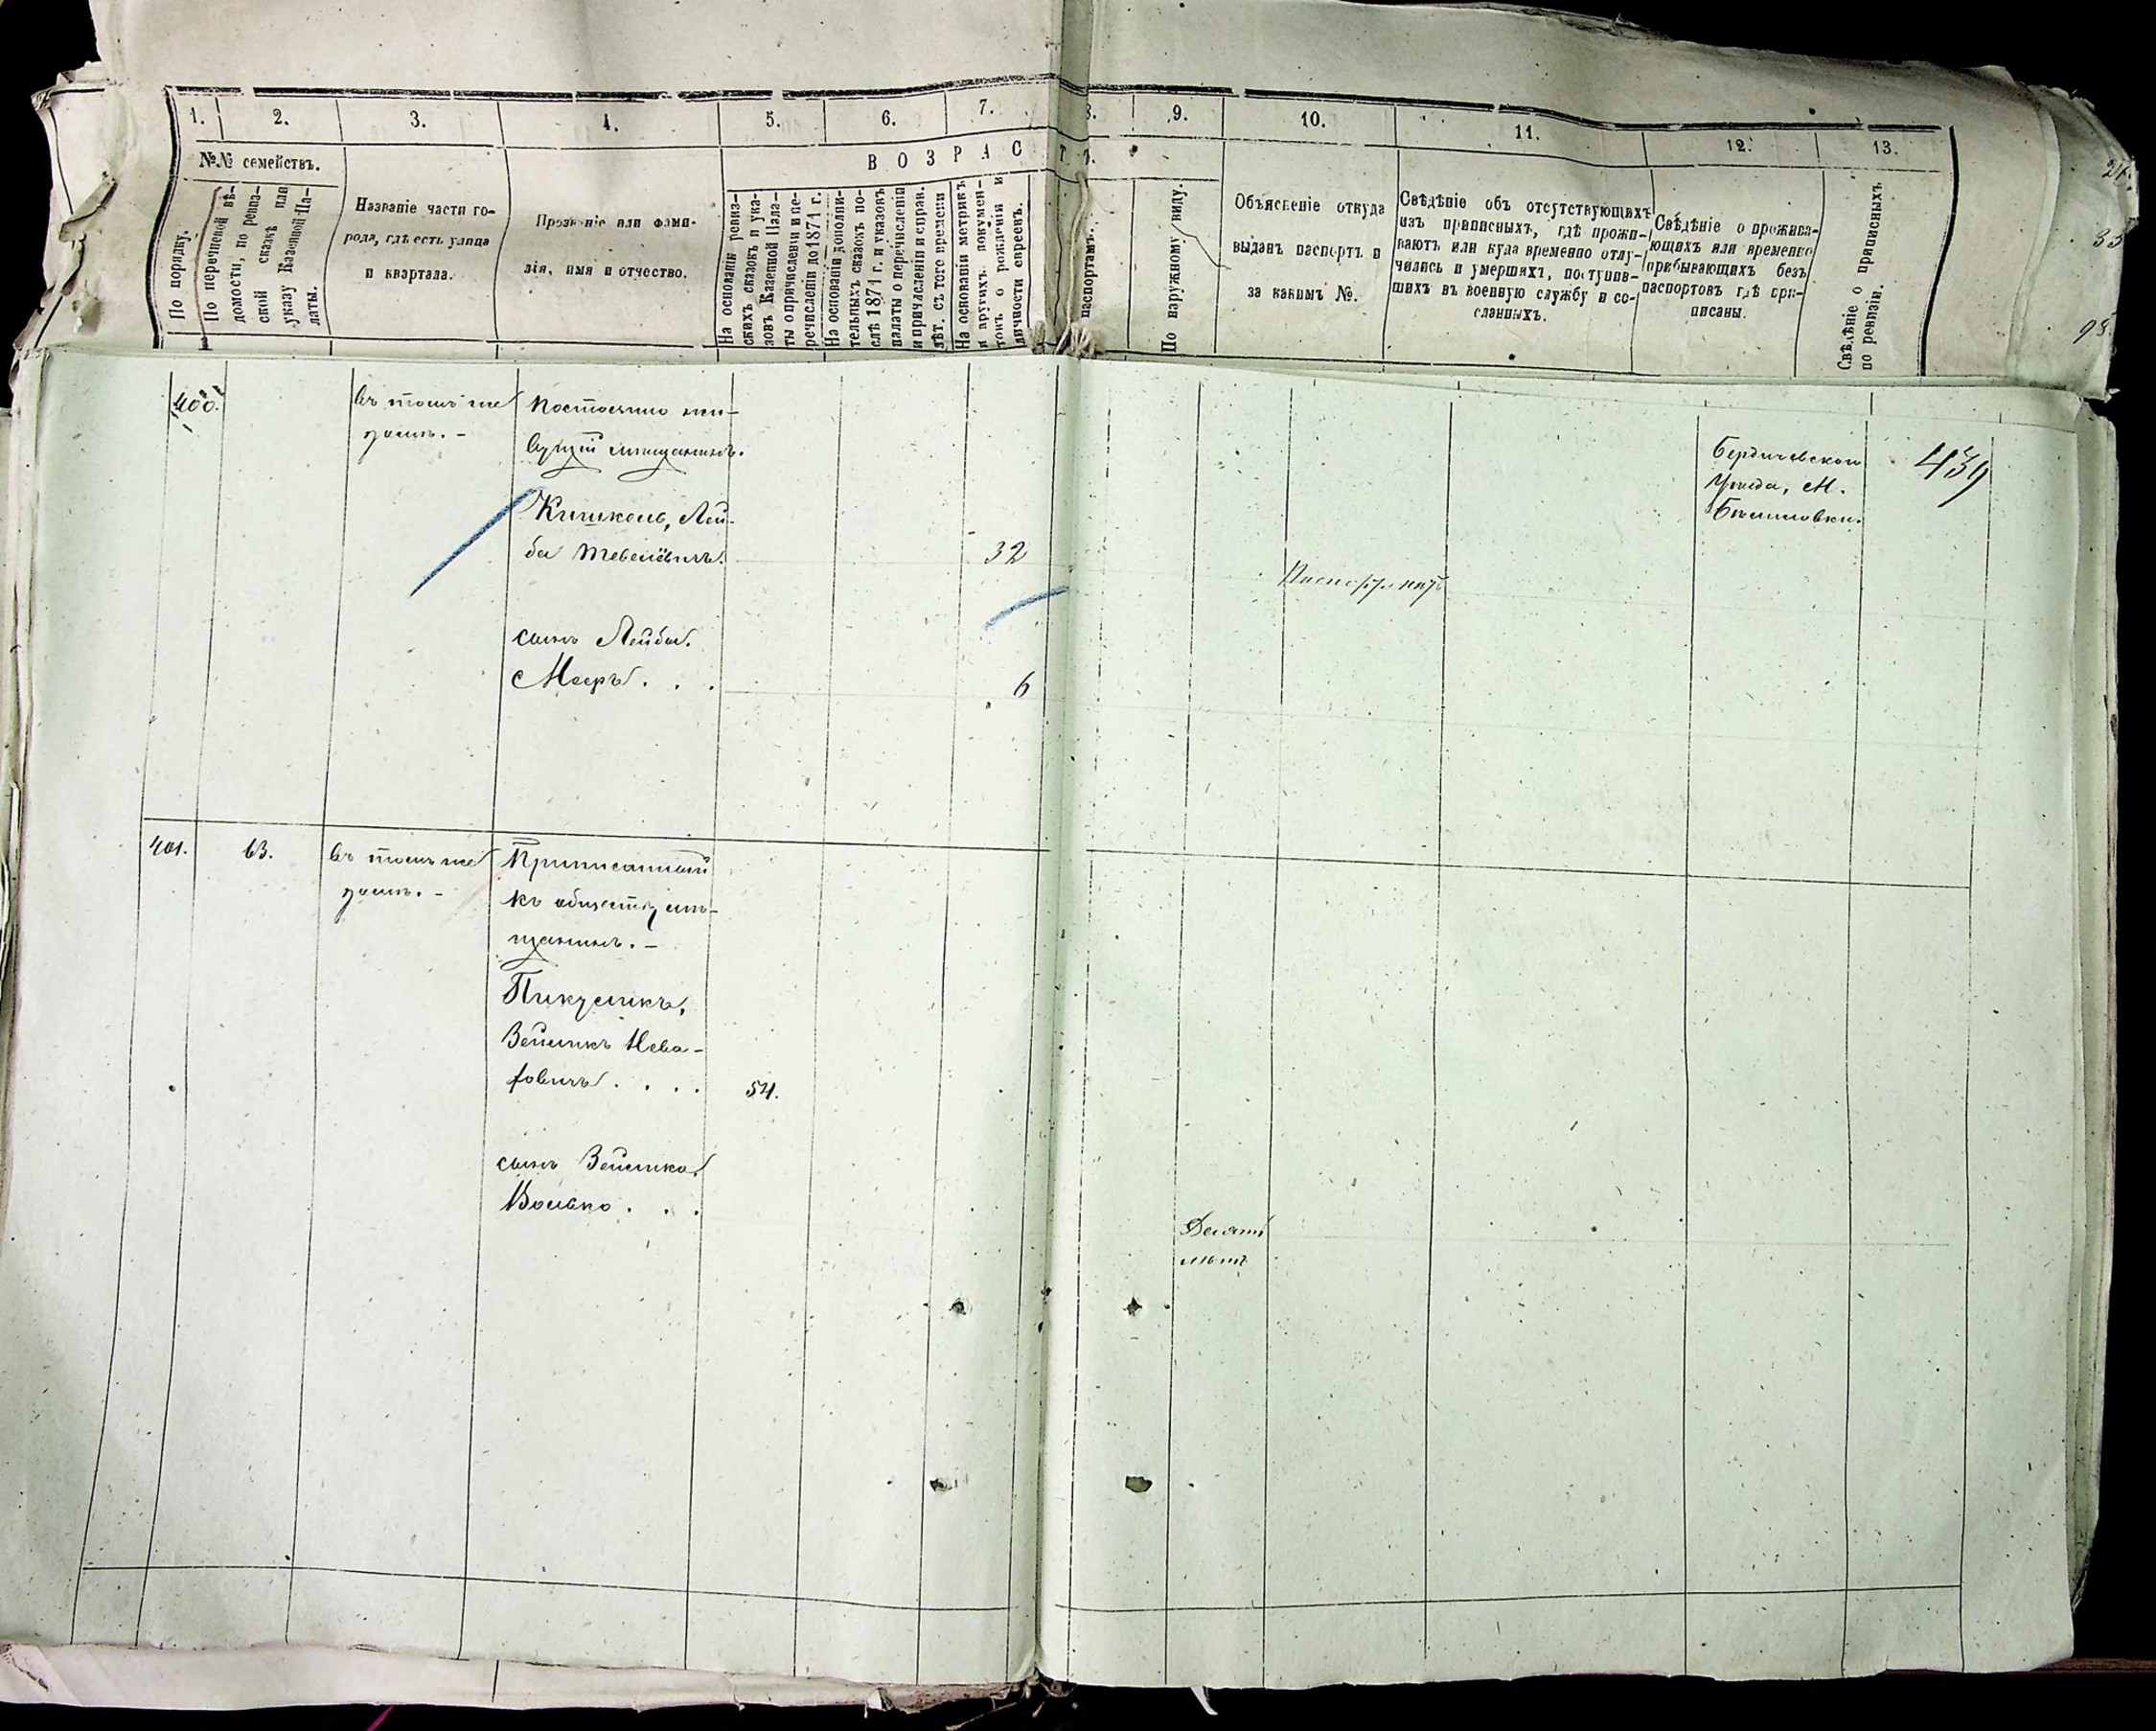 1.
2.
3.
4.
5.
6.
7.
8.
9.
10.
11.
12.
13.
№№ семействъ.
ВОЗРАСТЪ.
По порядку.
По перечневой вѣ-
домости, по ревиз-
ской сказкѣ или
указу Казенной Па-
латы.
Названіе части го-
рода, гдѣ есть улица
и квартала.
Прозваніе или фами-
лія, имя и отчество.
На основаніи ревиз-
скихъ сказокъ и ука-
зовъ Казенной Пала-
ты о причисленіи и пе-
речисленіи до 1871 г.
На основаніи дополни-
тельныхъ сказокъ по-
слѣ 1871 г. и указовъ
палаты о перечисленіи
и причисленіи и справ.
лѣт. съ того времени
На основаніи метрикъ
и другихъ докумен-
товъ о рожденіи и
личности евреевъ.
паспортамъ.
По наружному виду.
Объясненіе откуда
выданъ паспортъ и
за какимъ №.
Свѣдѣніе объ отсутствующихъ
изъ приписныхъ, гдѣ прожи-
ваютъ или куда временно отлу-
чились и умершихъ, поступив-
шихъ въ военную службу и со-
сланныхъ.
Свѣдѣніе о прожива-
ющихъ или временно
прибывающихъ безъ
паспортовъ гдѣ при-
писаны.
Свѣдѣніе о приписныхъ
по ревизіи.
400.
въ томъ же
домѣ. -
Постоянно жи-
вущій мѣщанинъ.
Кишкель, Лей-
ба Тевелёвичъ.
32
сынъ Лейбы.
Мееръ . . .
6
Паспорт. нѣтъ
Бердичевского
Уѣзда, М.
Бѣлиловки.
439
401.
63.
въ томъ же
домѣ. -
Приписанный
къ обществу мѣ-
щанинъ. -
Пикусикъ,
Зейликъ
54.
сынъ Зейлика
Волько . . .
Десять
лѣтъ